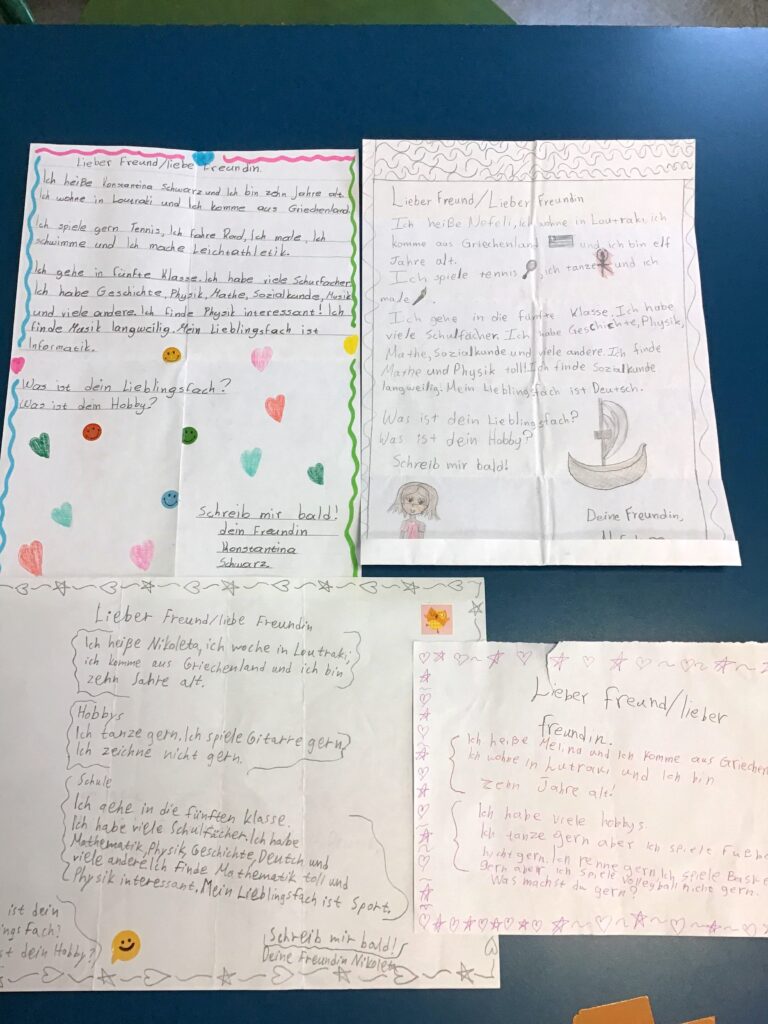 Lieber Freund/liebe Freundin.
Ich heiße Konstantina Schwarz und Ich bin zehn Jahre alt.
Ich wohne in Loutraki und Ich komme aus Griechenland.
Ich spiele gern Tennis, Ich fahre Rad, Ich male, Ich
schwimme und Ich mache Leichtathletik.
Ich gehe in fünfte Klasse. Ich habe viele Schulfächer.
Ich habe Geschichte, Physik, Mathe, Sozialkunde, Musik
und viele andere. Ich finde Physik interessant! Ich
finde Musik langweilig. Mein Lieblingsfach ist
Informatik.
Was ist dein Lieblingsfach?
Was ist dein Hobby?
Schreib mir bald!
dein Freundin
Konstantina
Schwarz
Lieber Freund/Liebe Freundin
Ich heiße Nefeli, ich wohne in Loutraki, ich
komme aus Griechenland und ich bin elf
Jahre alt.
Ich spiele tennis, ich tanze und ich
male.
Ich gehe in die fünfte Klasse. Ich habe
viele Schulfächer. Ich habe Geschichte, Physik,
Mathe, Sozialkunde und viele andere. Ich finde
Mathe und Physik toll! Ich finde Sozialkunde
langweilig. Mein Lieblingsfach ist Deutsch.
Was ist dein Lieblingsfach?
Was ist dein Hobby?
Schreib mir bald!
Deine Freundin,
Lieber Freund/liebe Freundin
Ich heiße Nikoleta, ich woche in Loutraki,
ich komme aus Griechenland und ich bin
zehn Jahre alt.
Hobbys
Ich tanze gern. Ich spiele Gitarre gern,
Ich zeichne nicht gern.
Schule
Ich gehe in die fünften klasse.
Ich habe viele Schulfächer. Ich habe
Mathematik, Physik, Geschichte, Deutch und
viele andere. Ich finde Mathematik toll und
Physik interessant. Mein Lieblingsfach ist Sport.
ist dein
ingsfach?
st dein Hobby?
Schreib mir bald!
Deine Freundin Nikoleta
Lieber Freund/lieber
freundin.
Ich heiße Melina und Ich komme aus Griechen
Ich wohne in Lutraki und Ich bin
zehn Jahre alt!
Ich habe viele hobbys.
Ich tanze gern aber Ich spiele
nicht gern. Ich renne gern, Ich spiele Baske
gern aber ich spiele volleyball nicht gern.
Was machst du gern?